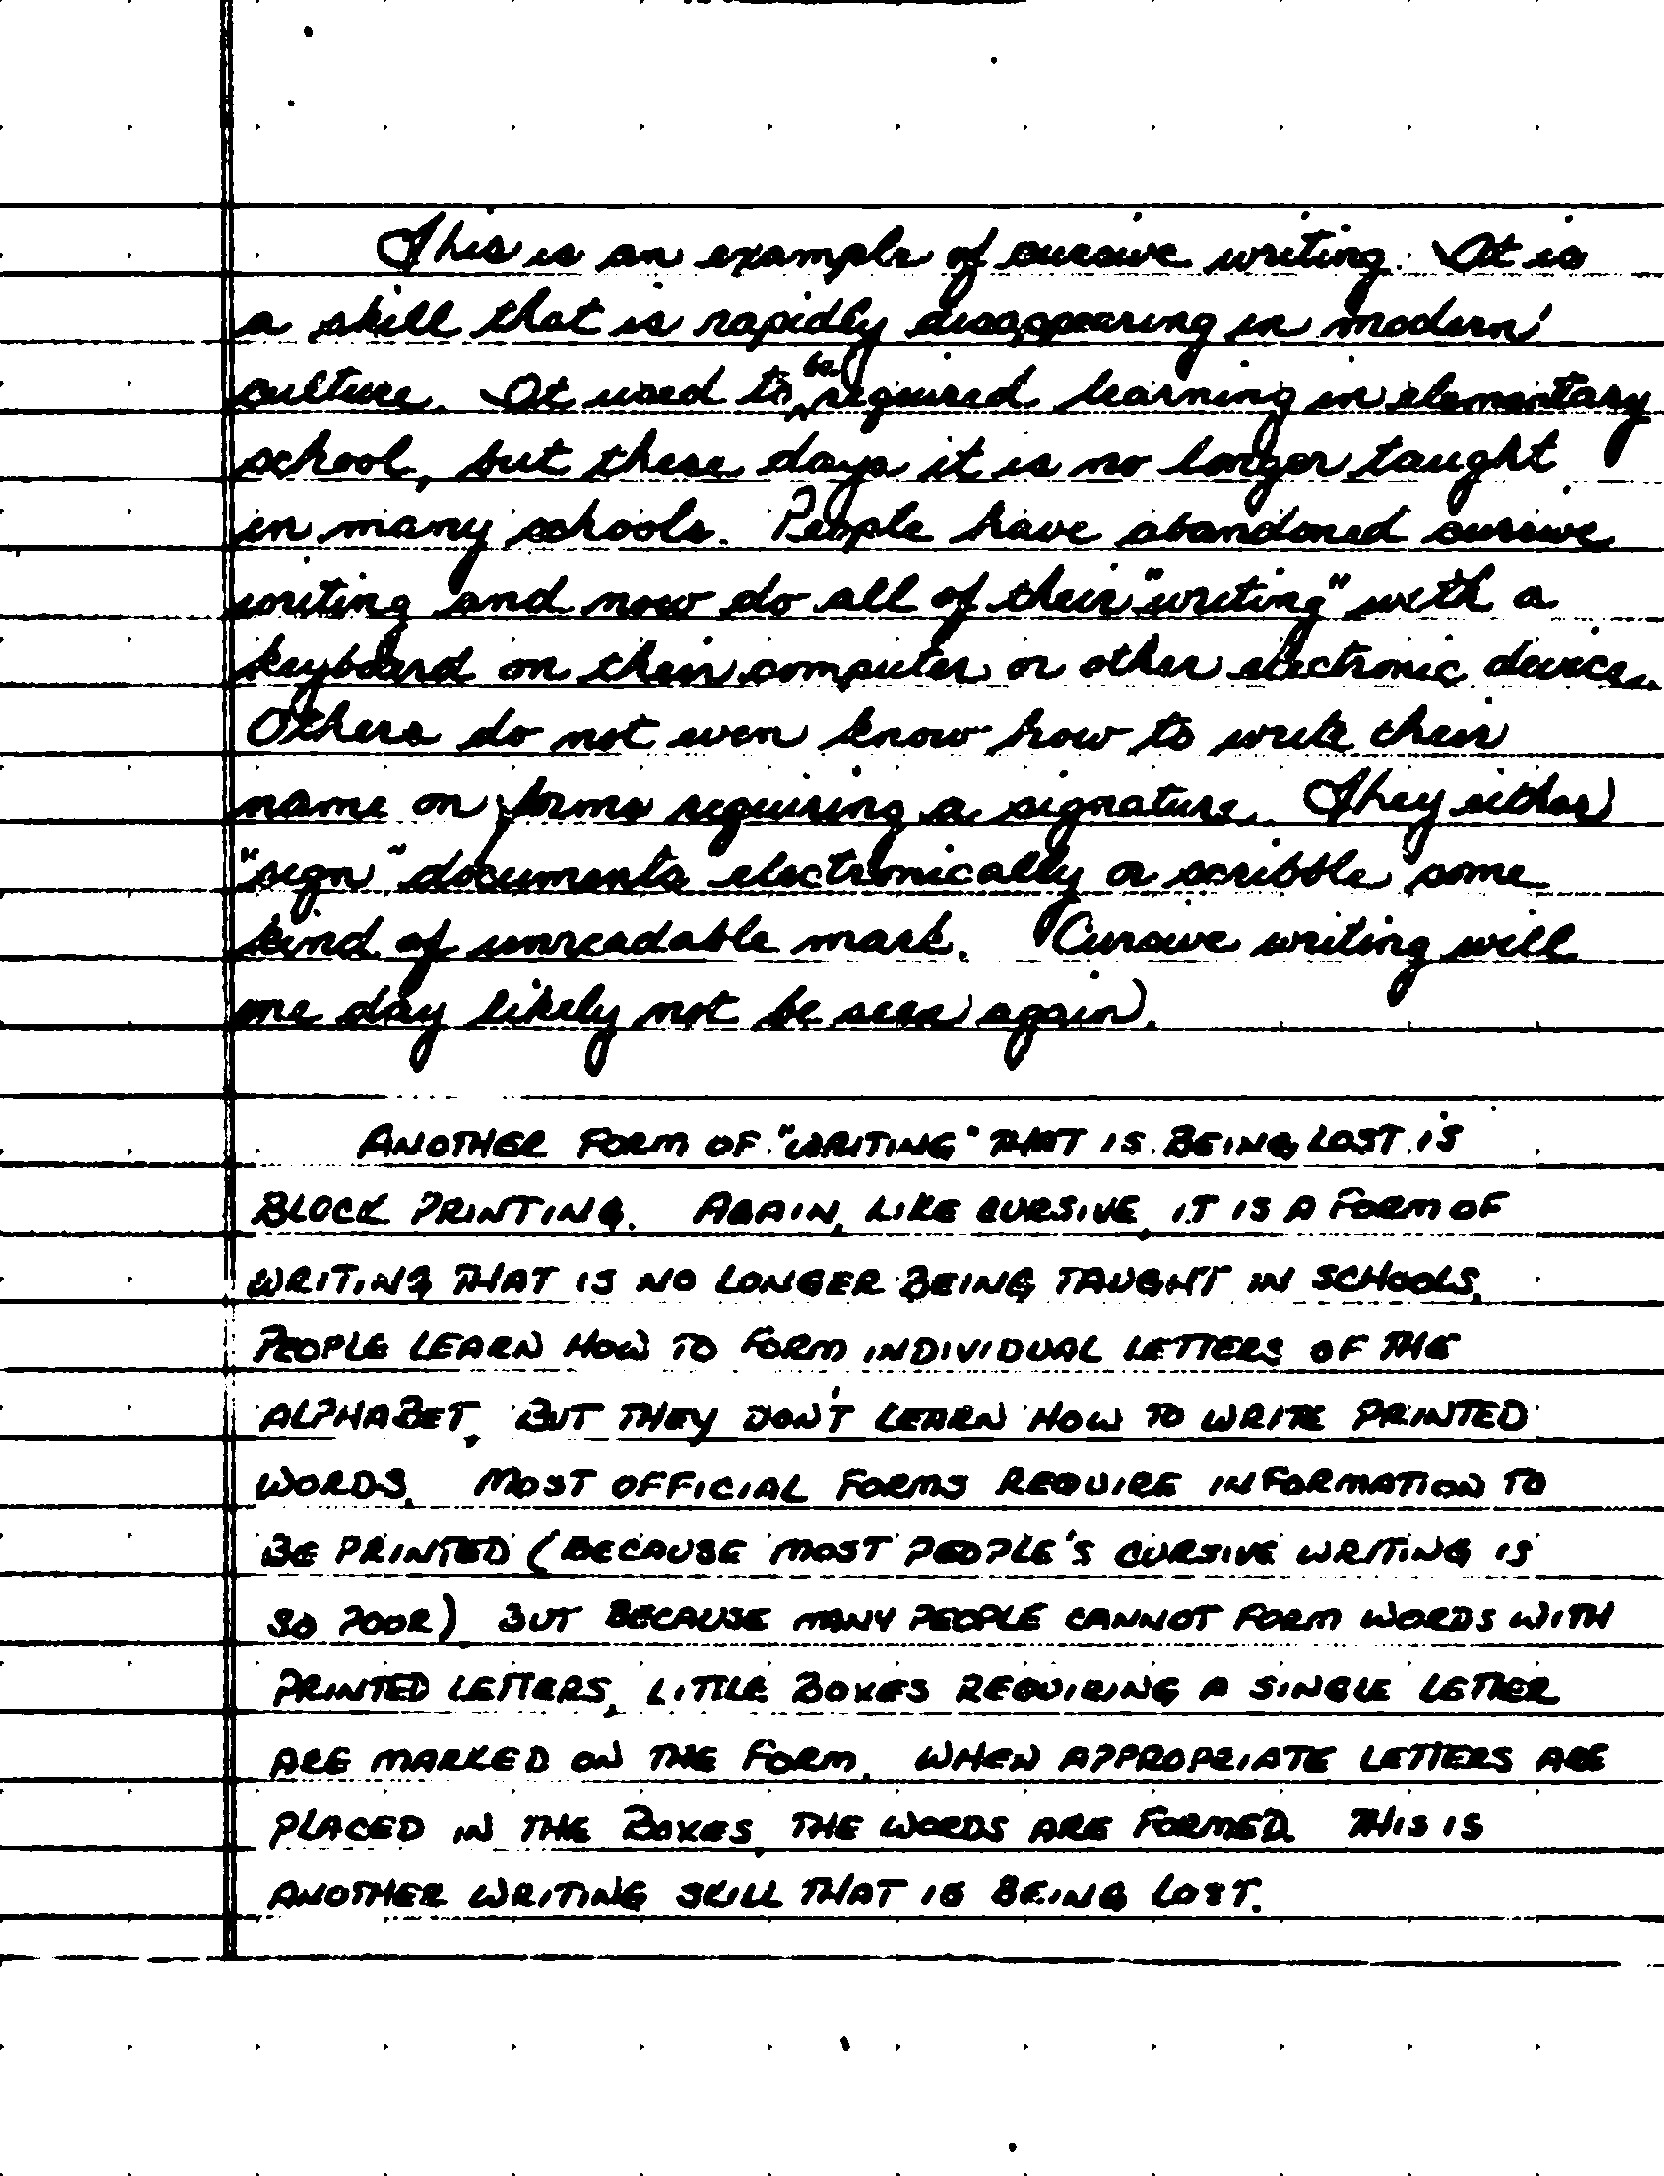 This is an example of cursive writing. It is
a skill that is rapidly disappearing in modern
culture. It used to be required learning in elementary
school, but these days it is no longer taught
in many schools. People have abandoned cursive
writing and now do all of their "writing" with a
keyboard on their computer or other electronic device.
Others do not even know how to write their
name on forms requiring a signature. They either
"sign" documents electronically or scribble some
kind of unreadable mark. Cursive writing will
one day likely not be seen again.
ANOTHER FORM OF "WRITING" THAT IS BEING LOST IS
BLOCK PRINTING. AGAIN, LIKE CURSIVE, IT IS A FORM OF
WRITING THAT IS NO LONGER BEING TAUGHT IN SCHOOLS.
PEOPLE LEARN HOW TO FORM INDIVIDUAL LETTERS OF THE
ALPHABET, BUT THEY DON'T LEARN HOW TO WRITE PRINTED
WORDS. MOST OFFICIAL FORMS REQUIRE INFORMATION TO
BE PRINTED (BECAUSE MOST PEOPLE'S CURSIVE WRITING IS
SO POOR) BUT BECAUSE MANY PEOPLE CANNOT FORM WORDS WITH
PRINTED LETTERS, LITTLE BOXES REQUIRING A SINGLE LETTER
ARE MARKED ON THE FORM. WHEN APPROPRIATE LETTERS ARE
PLACED IN THE BOXES, THE WORDS ARE FORMED. THIS IS
ANOTHER WRITING SKILL THAT IS BEING LOST.